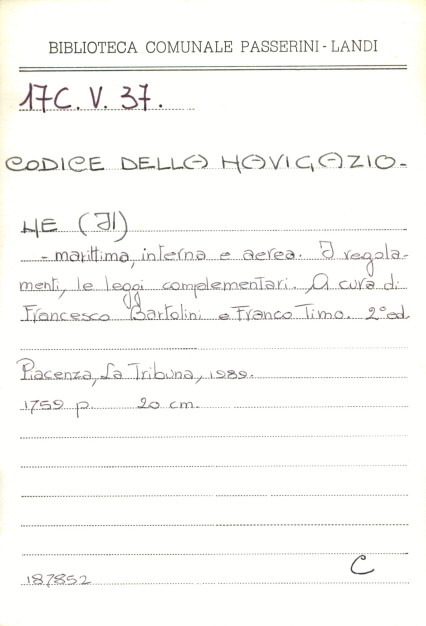 BIBLIOTECA COMUNALE PASSERINI-LANDI
17C. V. 37.
CODICE DELLA NAVIGAZIO-
NE (Il)
- marittima, interna e aerea. I regola-
menti, le leggi complementari. A cura di
Francesco Bartolini e Franco Timo. 2° ed.
Piacenza, La Tribuna, 1989.
1759 p. 20 cm.
C
187852